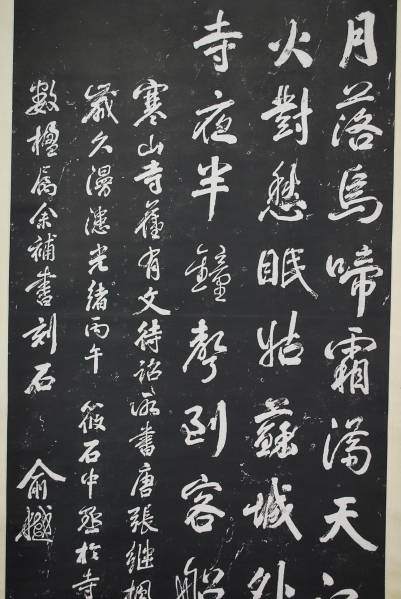 月落烏啼霜滿天江
火對愁眠姑蘇城外
寺夜半鐘聲到客船
寒山寺舊有文待詔所書唐張繼楓
歲久漫漶光緒丙午筱石中丞於寺
數楹屬余補書刻石 俞樾